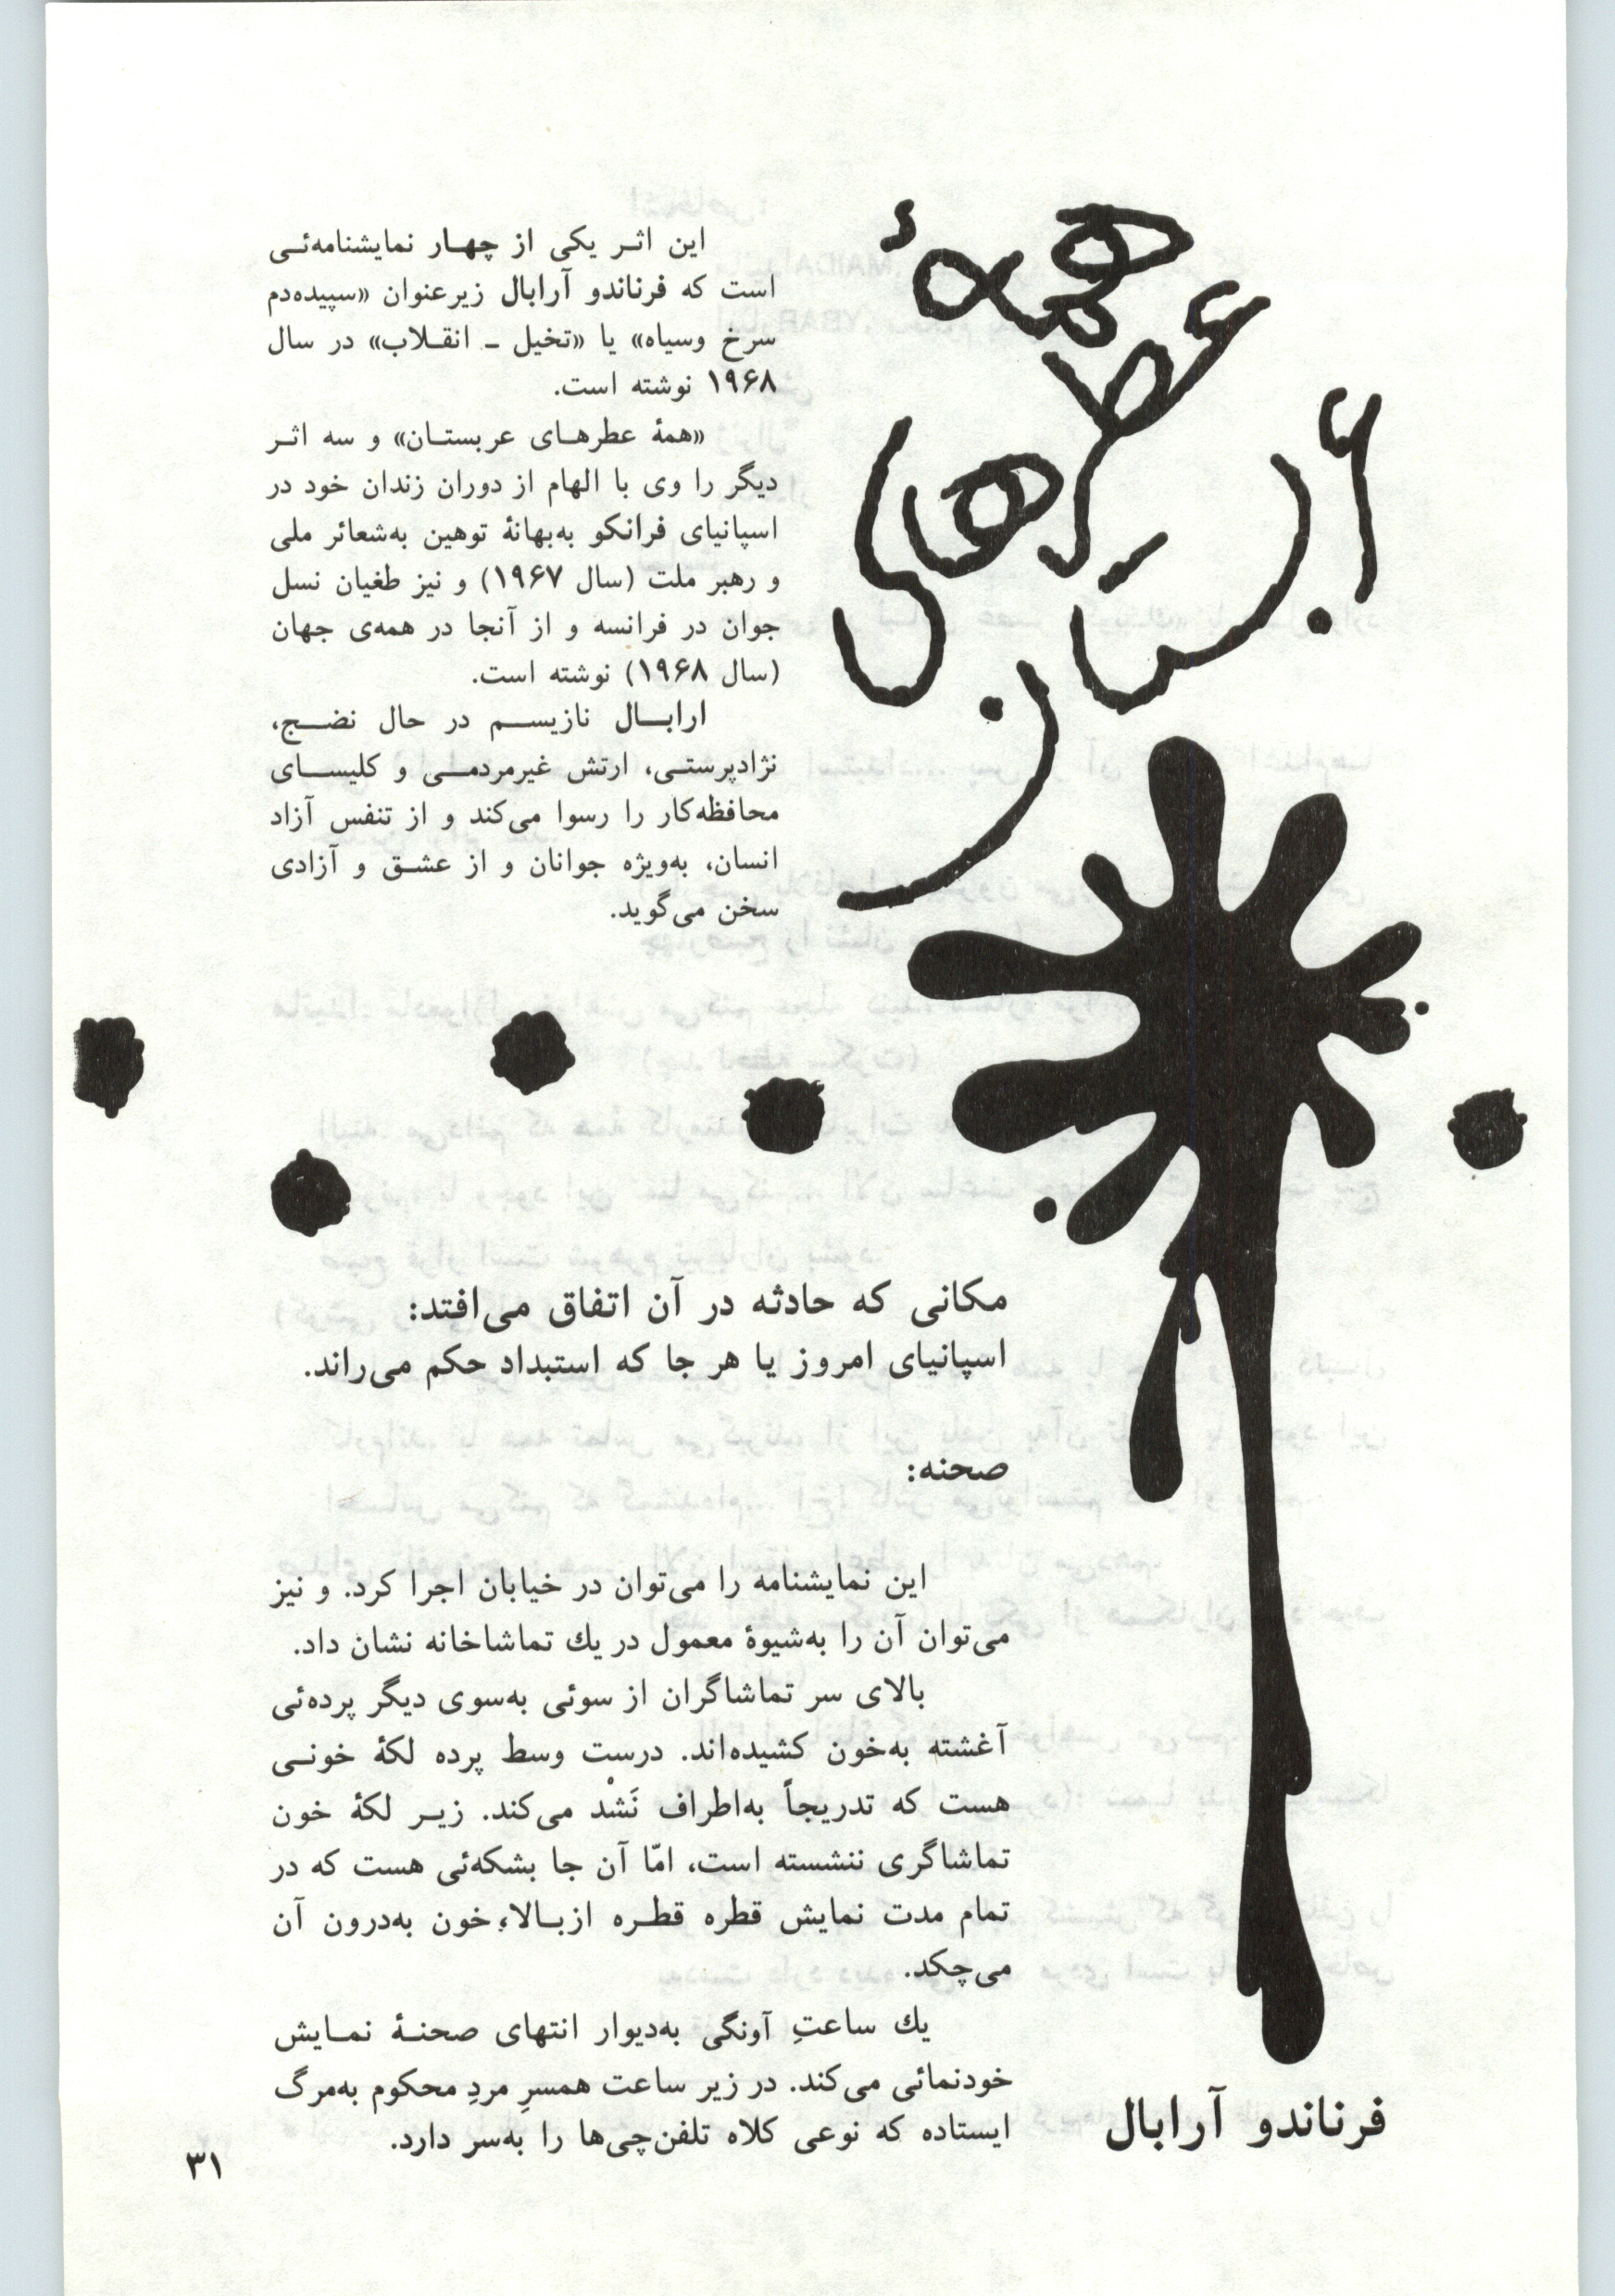 همهٔ
عطرهای
عربستان
این اثـر یکی از چهـار نمایشنامه‌ئـی
است که فرناندو آرابال زیرعنوان «سپیده‌دم
سرخ وسیاه» یا «تخیل ـ انقـلاب» در سال
۱۹۶۸ نوشته است.
«همهٔ عطرهـای عربستـان» و سه اثـر
دیگر را وی با الهام از دوران زندان خود در
اسپانیای فرانکو به‌بهانهٔ توهین به‌شعائر ملی
و رهبر ملت (سال ۱۹۶۷) و نیز طغیان نسل
جوان در فرانسه و از آنجا در همه‌ی جهان
(سال ۱۹۶۸) نوشته است.
ارابـال نازیسـم در حال نضـج،
نژادپرستـی، ارتش غیرمردمـی و کلیسـای
محافظه‌کار را رسوا می‌کند و از تنفس آزاد
انسان، به‌ویژه جوانان و از عشـق و آزادی
سخن می‌گوید.
مکانی که حادثه در آن اتفاق می‌افتد:
اسپانیای امروز یا هر جا که استبداد حکم می‌راند.
صحنه:
این نمایشنامه را می‌توان در خیابان اجرا کرد. و نیز
می‌توان آن را به‌شیوهٔ معمول در یك تماشاخانه نشان داد.
بالای سر تماشاگران از سوئی به‌سوی دیگر پرده‌ئی
آغشته به‌خون کشیده‌اند. درست وسط پرده لکهٔ خونـی
هست که تدریجاً به‌اطراف نَشْد می‌کند. زیـر لکهٔ خون
تماشاگری ننشسته است، امّا آن جا بشکه‌ئی هست که در
تمام مدت نمایش قطره قطـره ازبـالاء خون به‌درون آن
می‌چکد.
یك ساعتِ آونگی به‌دیوار انتهای صحنـهٔ نمـایش
خودنمائی می‌کند. در زیر ساعت همسرِ مردِ محکوم به‌مرگ
ایستاده که نوعی کلاه تلفن‌چی‌ها را به‌سر دارد.
فرناندو آرابال
۳۱